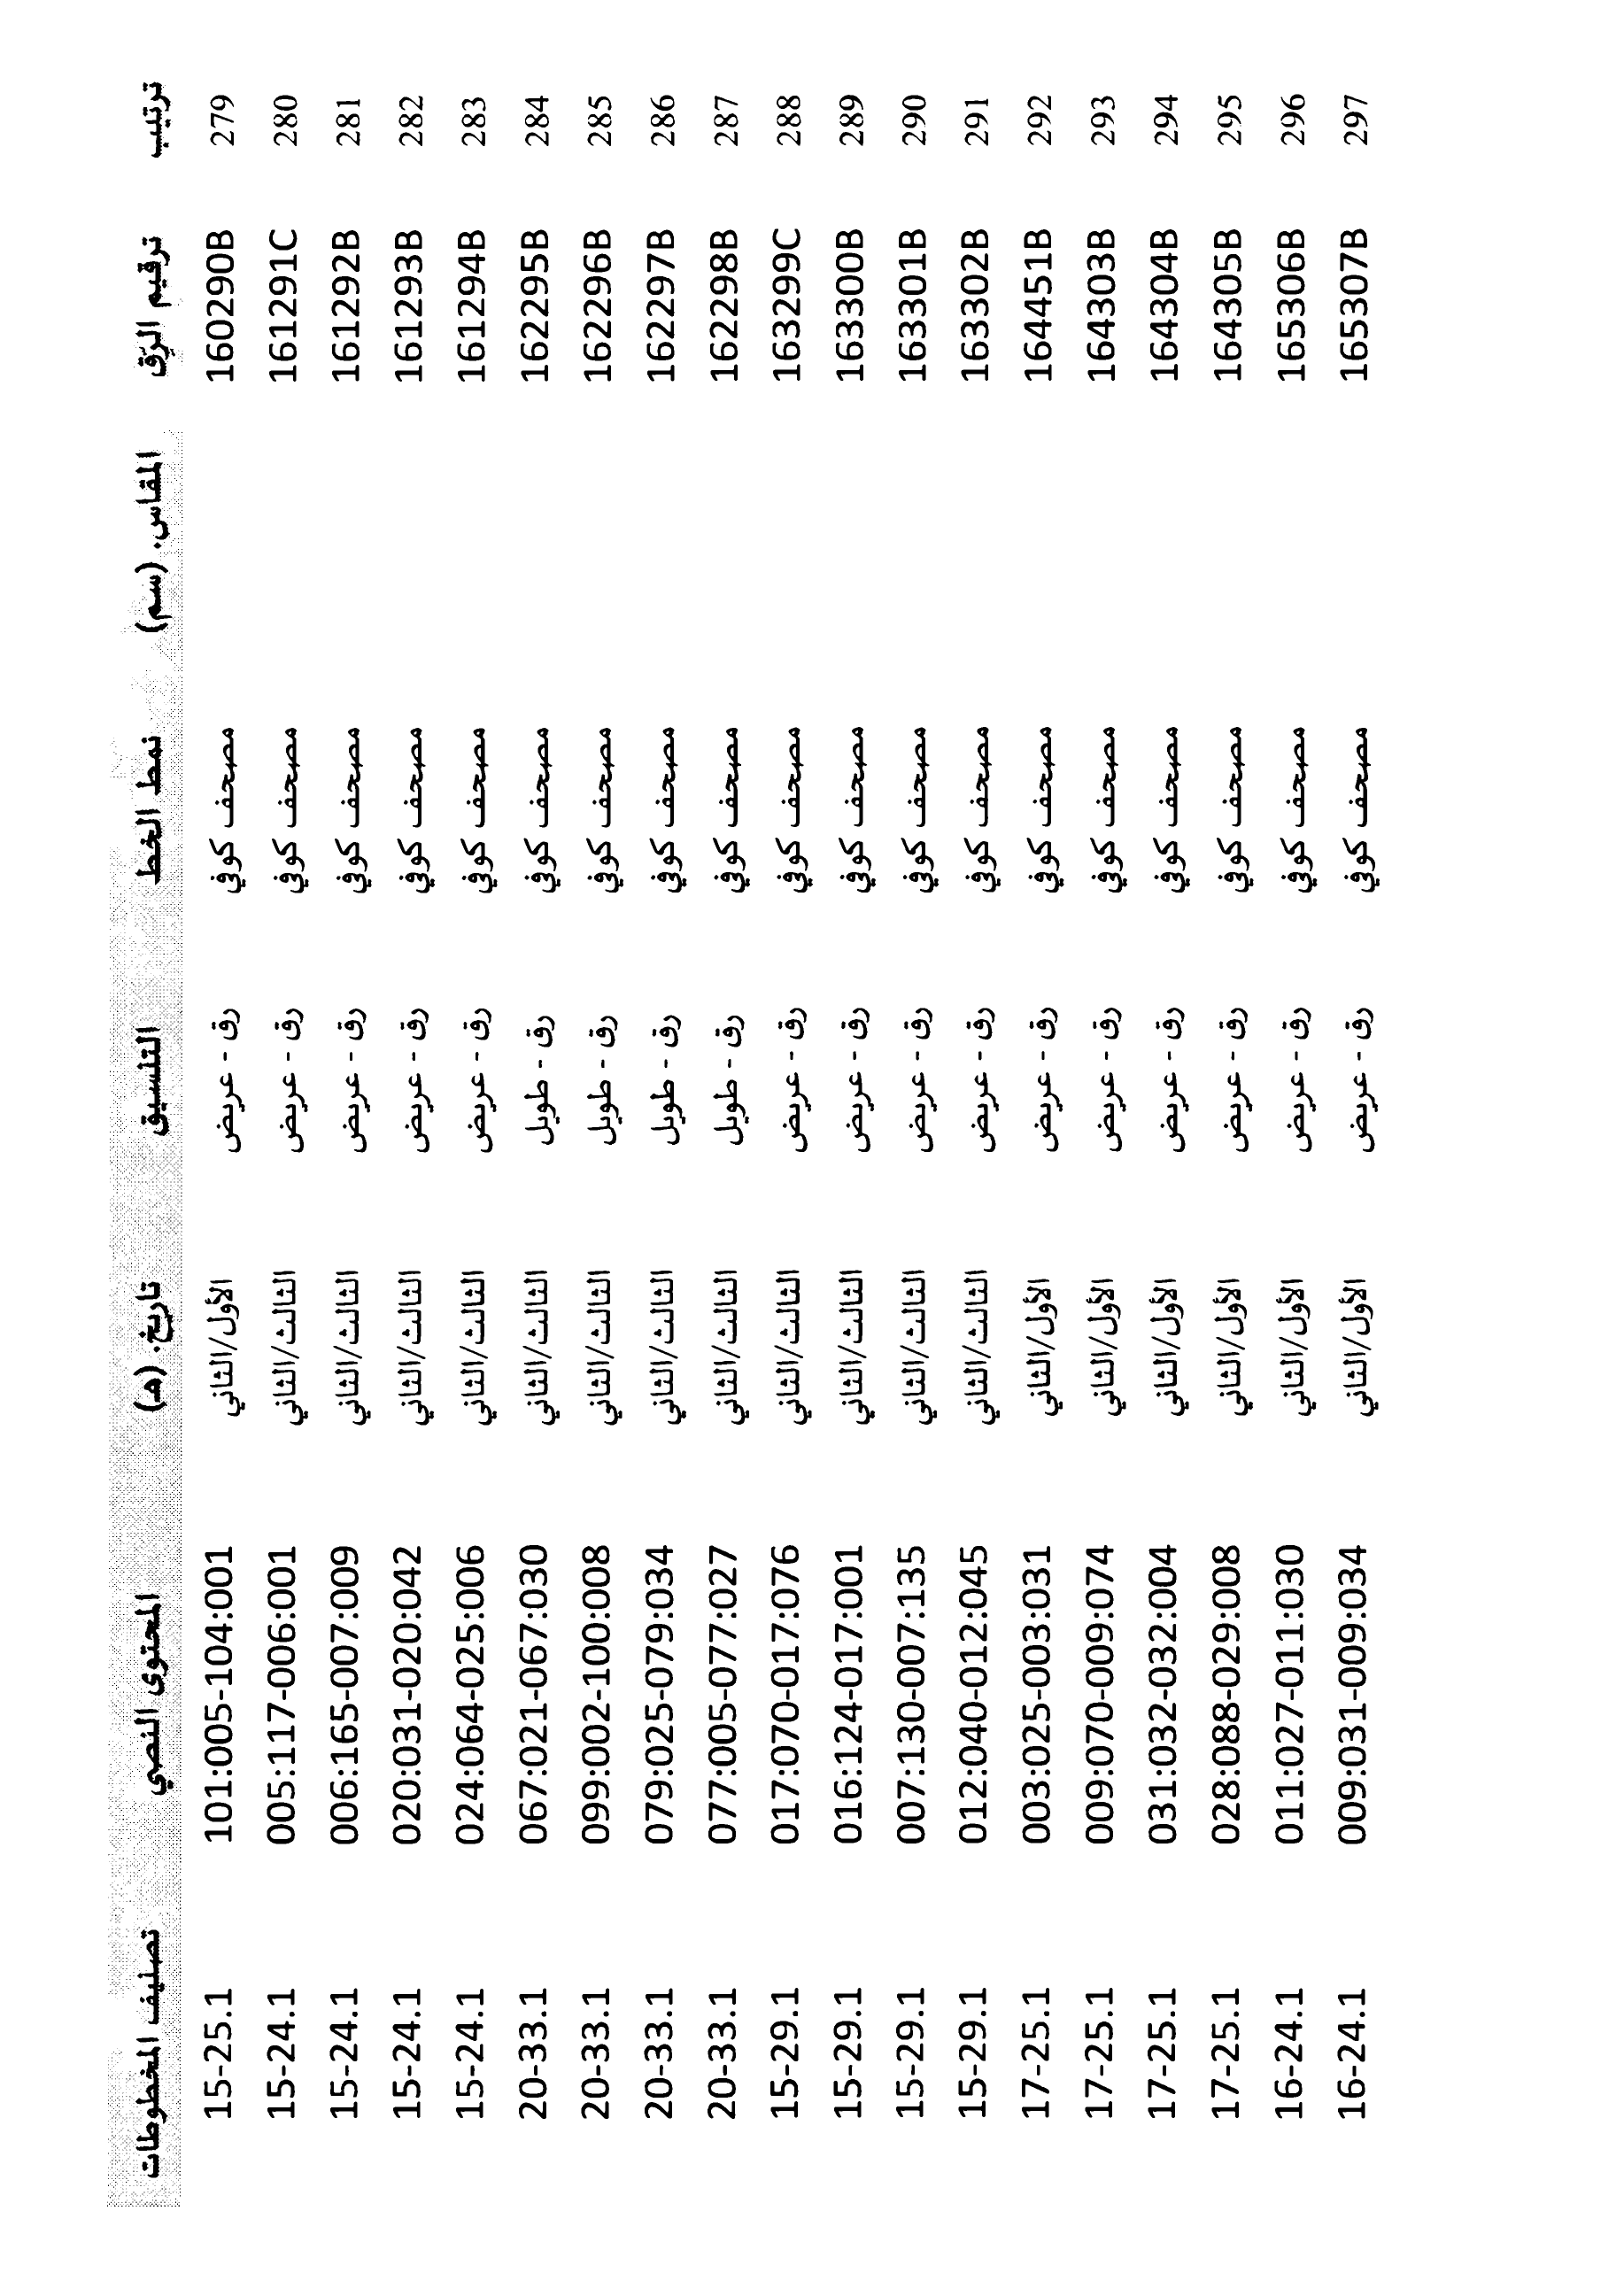 ترتيب ترقيم الرّق المقاس. (سم) نمط الخط التنسيق تاريخ. (هـ) المحتوى النصي تصنيف المخطوطات
279 160290B مصحف كوفي رق - عريض الأول/الثاني 101:005-104:001 15-25.1
280 161291C مصحف كوفي رق - عريض الثالث/الثاني 005:117-006:001 15-24.1
281 161292B مصحف كوفي رق - عريض الثالث/الثاني 006:165-007:009 15-24.1
282 161293B مصحف كوفي رق - عريض الثالث/الثاني 020:031-020:042 15-24.1
283 161294B مصحف كوفي رق - عريض الثالث/الثاني 024:064-025:006 15-24.1
284 162295B مصحف كوفي رق - طويل الثالث/الثاني 067:021-067:030 20-33.1
285 162296B مصحف كوفي رق - طويل الثالث/الثاني 099:002-100:008 20-33.1
286 162297B مصحف كوفي رق - طويل الثالث/الثاني 079:025-079:034 20-33.1
287 162298B مصحف كوفي رق - طويل الثالث/الثاني 077:005-077:027 20-33.1
288 163299C مصحف كوفي رق - عريض الثالث/الثاني 017:070-017:076 15-29.1
289 163300B مصحف كوفي رق - عريض الثالث/الثاني 016:124-017:001 15-29.1
290 163301B مصحف كوفي رق - عريض الثالث/الثاني 007:130-007:135 15-29.1
291 163302B مصحف كوفي رق - عريض الثالث/الثاني 012:040-012:045 15-29.1
292 164451B مصحف كوفي رق - عريض الأول/الثاني 003:025-003:031 17-25.1
293 164303B مصحف كوفي رق - عريض الأول/الثاني 009:070-009:074 17-25.1
294 164304B مصحف كوفي رق - عريض الأول/الثاني 031:032-032:004 17-25.1
295 164305B مصحف كوفي رق - عريض الأول/الثاني 028:088-029:008 17-25.1
296 165306B مصحف كوفي رق - عريض الأول/الثاني 011:027-011:030 16-24.1
297 165307B مصحف كوفي رق - عريض الأول/الثاني 009:031-009:034 16-24.1